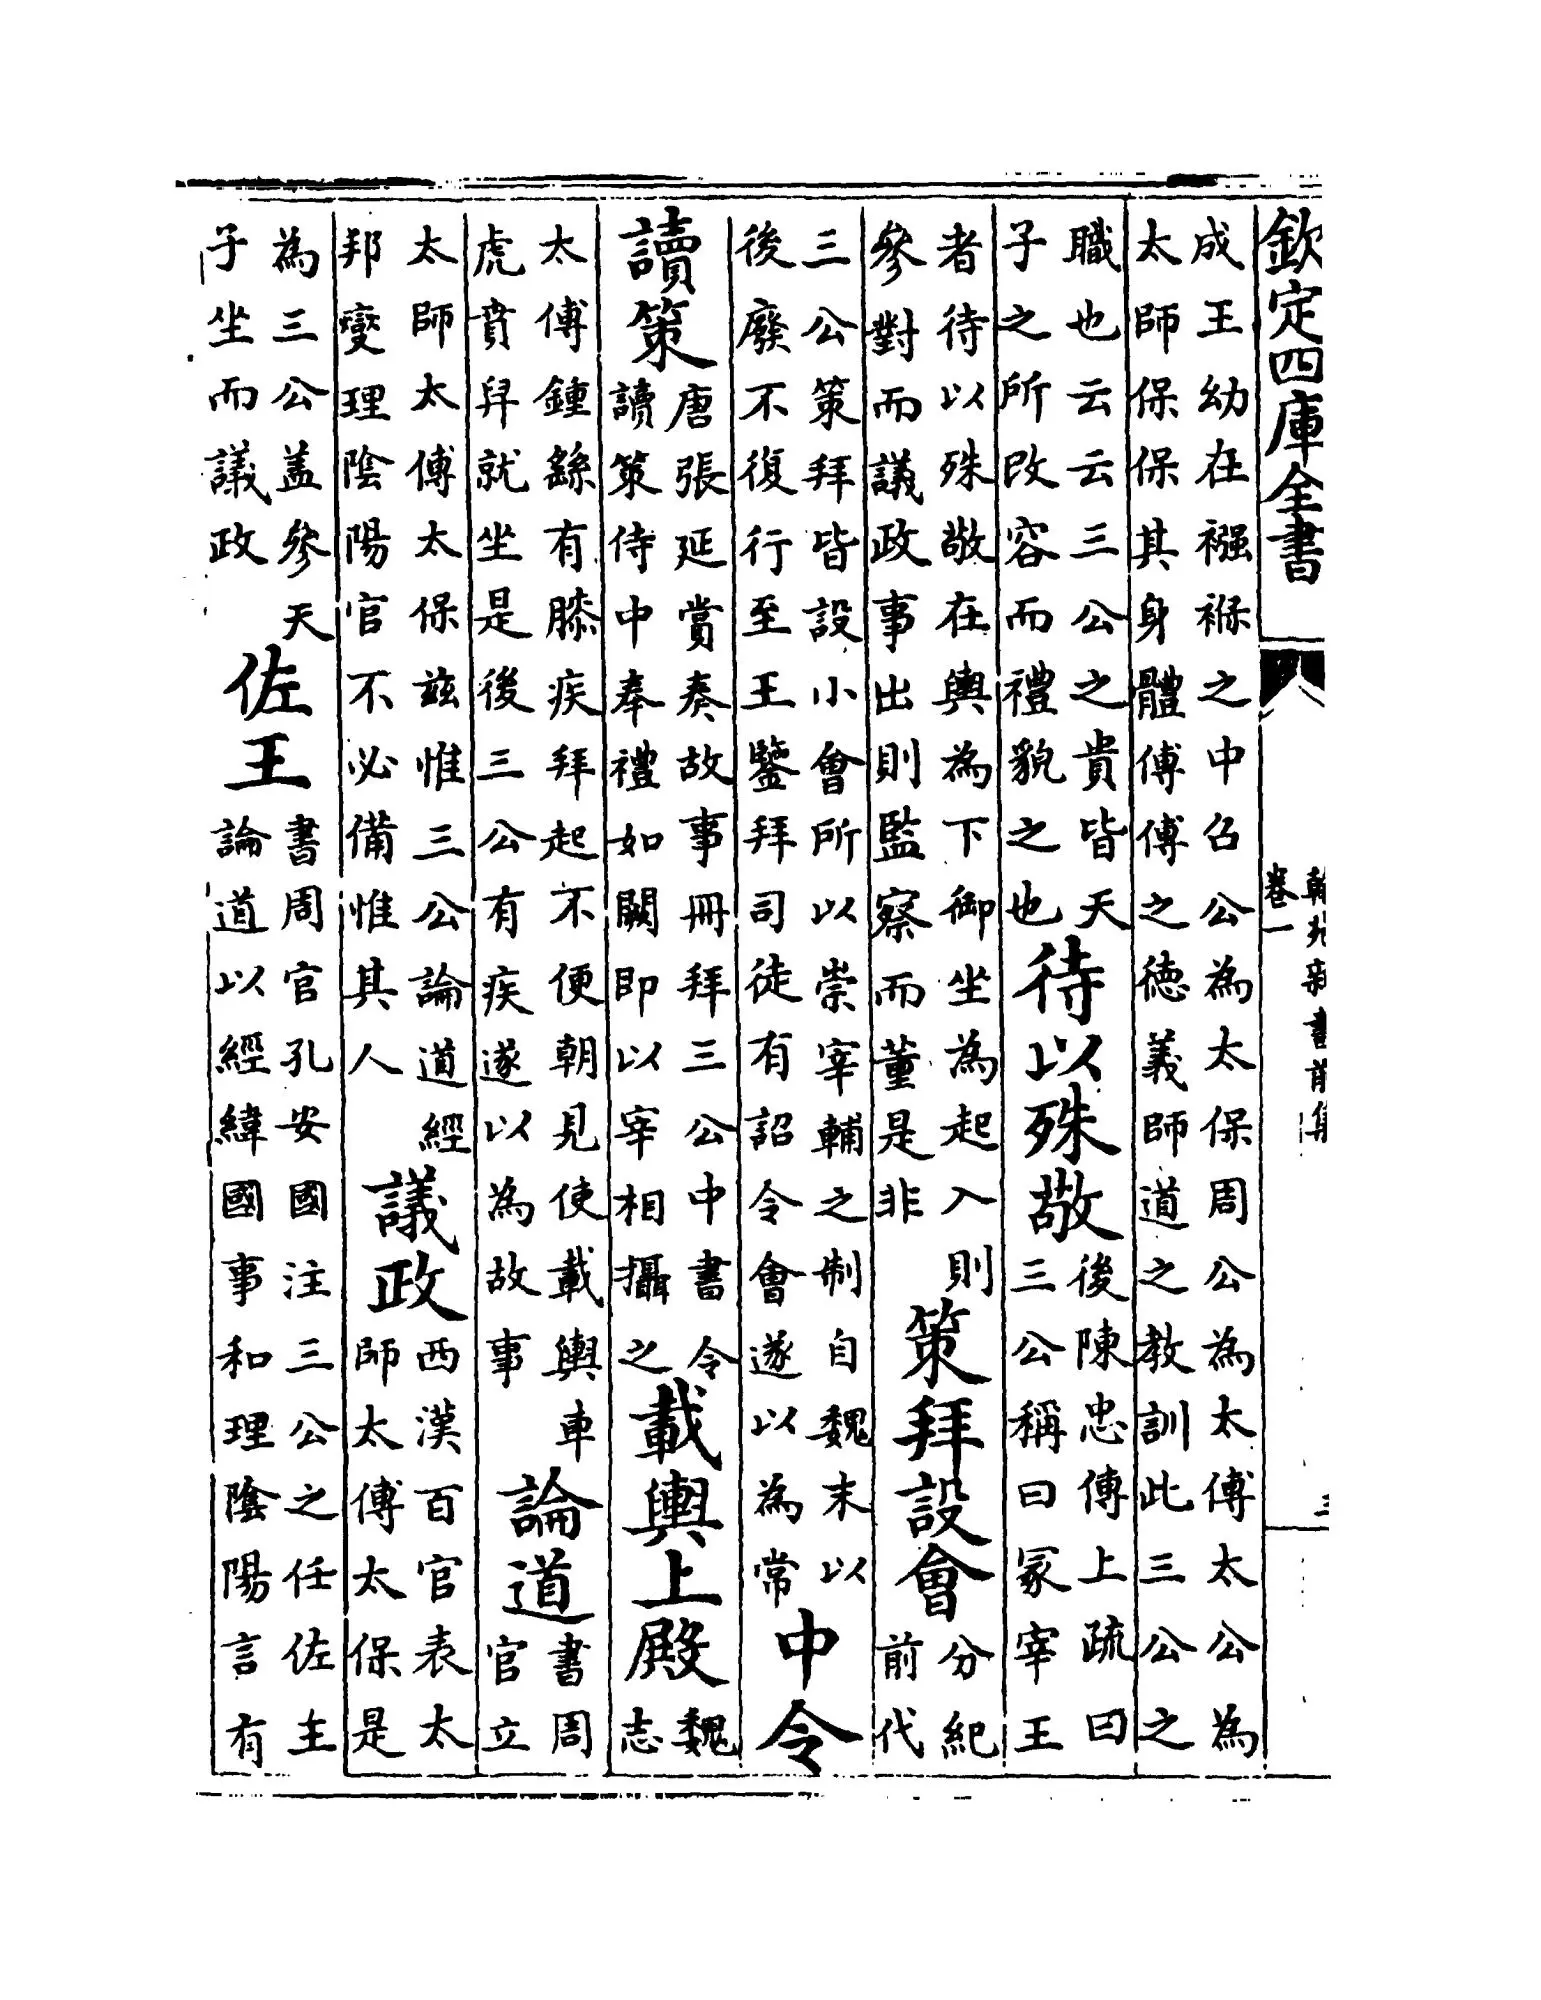 欽定四庫全書
翰苑新書前集
卷一
成王幼在襁褓之中召公為太保周公為太傅太公為
太師保保其身體傅傅之德義師道之教訓此三公之
職也云云三公之貴皆天
子之所改容而禮貌之也
待以殊敬
後陳忠傳上疏曰
三公稱曰冢宰王
者待以殊敬在輿為下御坐為起入則
參對而議政事出則監察而董是非
策拜設會
分紀
前代
三公策拜皆設小會所以崇宰輔之制自魏末以
後廢不復行至王鑒拜司徒有詔令會遂以為常
中令
讀策
唐張延賞奏故事冊拜三公中書令
讀策侍中奉禮如闕即以宰相攝之
載輿上殿
魏
志
太傅鍾繇有膝疾拜起不便朝見使載輿車
虎賁舁就坐是後三公有疾遂以為故事
論道
書周
官立
太師太傅太保茲惟三公論道經
邦燮理陰陽官不必備惟其人
議政
西漢百官表太
師太傅太保是
為三公盖參天
子坐而議政
佐王
書周官孔安國注三公之任佐主
論道以經緯國事和理陰陽言有